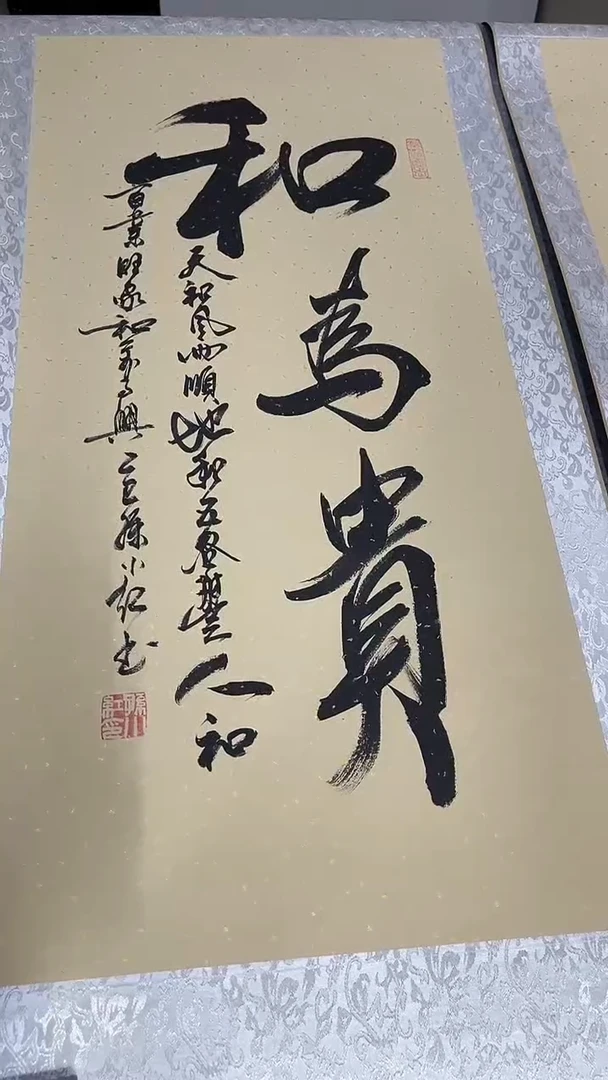 和為貴
天和風雨順地和五谷豐人和
百業旺家和萬事興
孫小紅書
孫小紅印